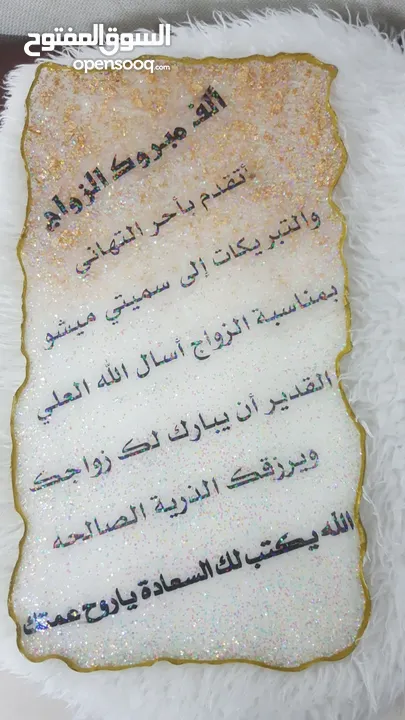 السوق المفتوح
opensooq.com
ألف مبروك الزواج
أتقدم بأحر التهاني
والتبريكات إلى سميتي ميشو
بمناسبة الزواج أسال الله العلي
القدير أن يبارك لك زواجك
ويرزقك الذرية الصالحه
الله يكتب لك السعادة ياروح عمتك